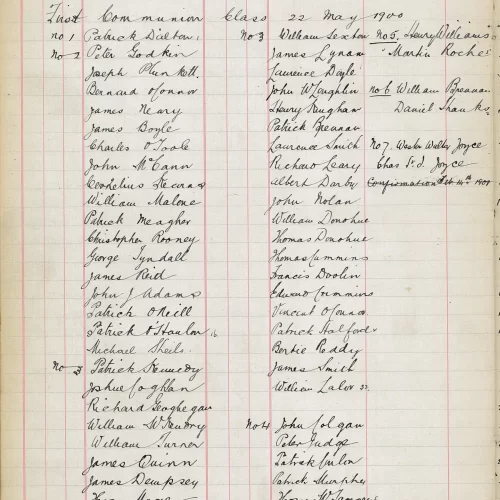 First Communion Class 22 May 1900
no 1 Patrick Dillon
no 2 Peter Godkin
Joseph Plunkett
Bernard O'Connor
James Neary
James Boyle
Charles O'Toole
John McCann
Cornelius Kearns
William Malone
Patrick Meagher
Christopher Rooney
George Tyndall
James Reid
John J Adams
Patrick O'Neill
Patrick O'Hanlon 16
Michael Sheils
no 3 Patrick Kennedy
Joshue Coghlan
Richard Geoghegan
William
William Turner
James Quinn
James Dempsey
no 3 William Sexton
James Lynam
Laurence Doyle
John McLoughlin
Henry Vaughan
Patrick Brennan
Laurence Smith
Richard Leary
Albert Darby
John Nolan
William Donohue
Thomas Donohue
Thomas Cummins
Francis Doolin
Edward Cremmins
Vincent O'Connor
Patrick Halford
Bertie Reddy
James Smith
William Lalor 22
no 4 John Colgan
Peter Judge
Patrick
Patrick Murphy
no 5. Henry Williams
Martin Roche
no 6 William Brennan
Daniel Shanks
no 7. Walter Joyce
Chas St. J. Joyce
Confirmation Feb 14th 1901